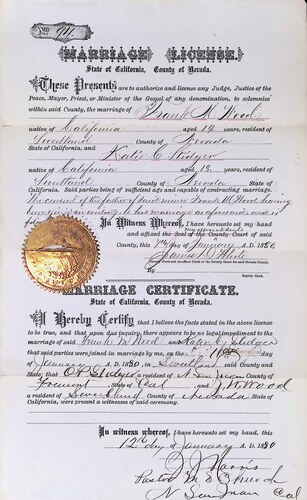 No. 911
MARRIAGE LICENSE.
State of California, County of Nevada.
These Presents are to authorize and license any Judge, Justice of the
Peace, Mayor, Priest, or Minister of the Gospel of any denomination, to solemnize
within said County, the marriage of Frank M Wood
native of California aged 19 years, resident of
Sweetland County of Nevada
State of California, and Katie C Stidger
native of California aged 18 years, resident of
Sweetland County of Nevada State of
California. Said parties being of sufficient age and capable of contracting marriage.
The consent of the father of said minor Frank M Wood having
been given in writing to his marriage as aforesaid
In Witness Whereof, I have hereunto set my hand
and affixed the Seal of the County Court of said
County, this day of January A.D. 1880
James D White
Deputy Clerk.
MARRIAGE CERTIFICATE.
State of California, County of Nevada.
I Hereby Certify that I believe the facts stated in the above license
to be true, and that upon due inquiry, there appears to be no legal impediment to the
marriage of said Frank M Wood and Katie C. Stidger
that said parties were joined in marriage by me, on the
January A.D. 1880, in Sweetland said County and
State; that O P Stidger a resident of N San Juan County of
State of Cal and Wood
a resident of Sweetland County of Nevada State of
California, were present as witnesses of said ceremony.
In witness whereof, I have hereunto set my hand, this
12th day of January A.D. 1880
J Harris
Pastor M E Church
N San Juan Cal